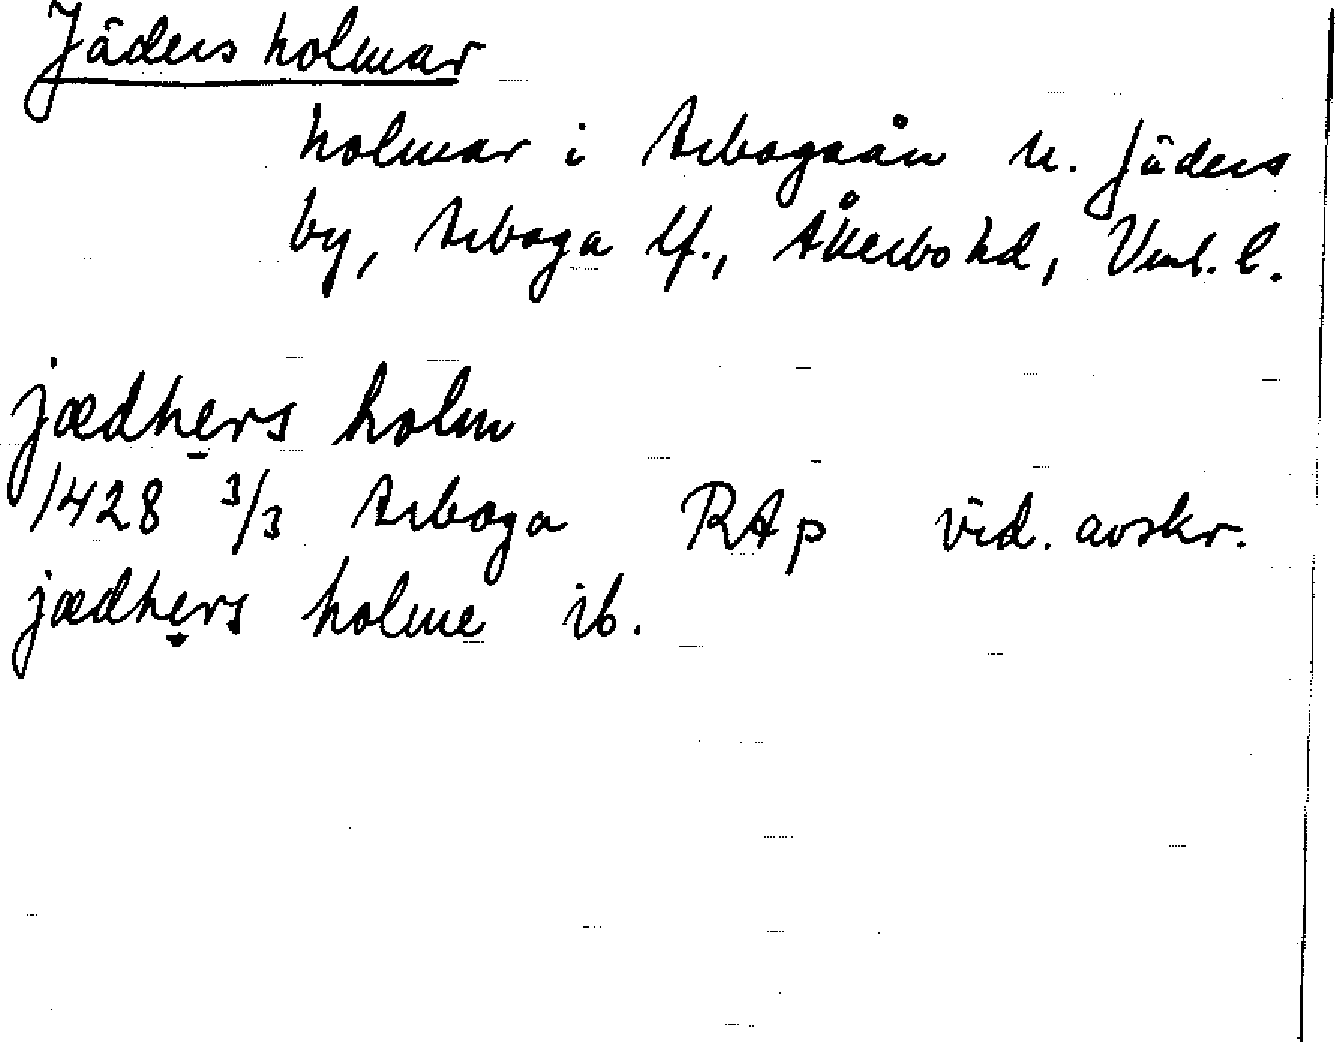 Jäders holmar
holmar i Arbogaån u. Jäders
by, Arboga lf., Åkerbo hd, Vml. l.
jædhers holm
1428 3/3 Arboga RAp vid. avskr.
jædhers holme ib.